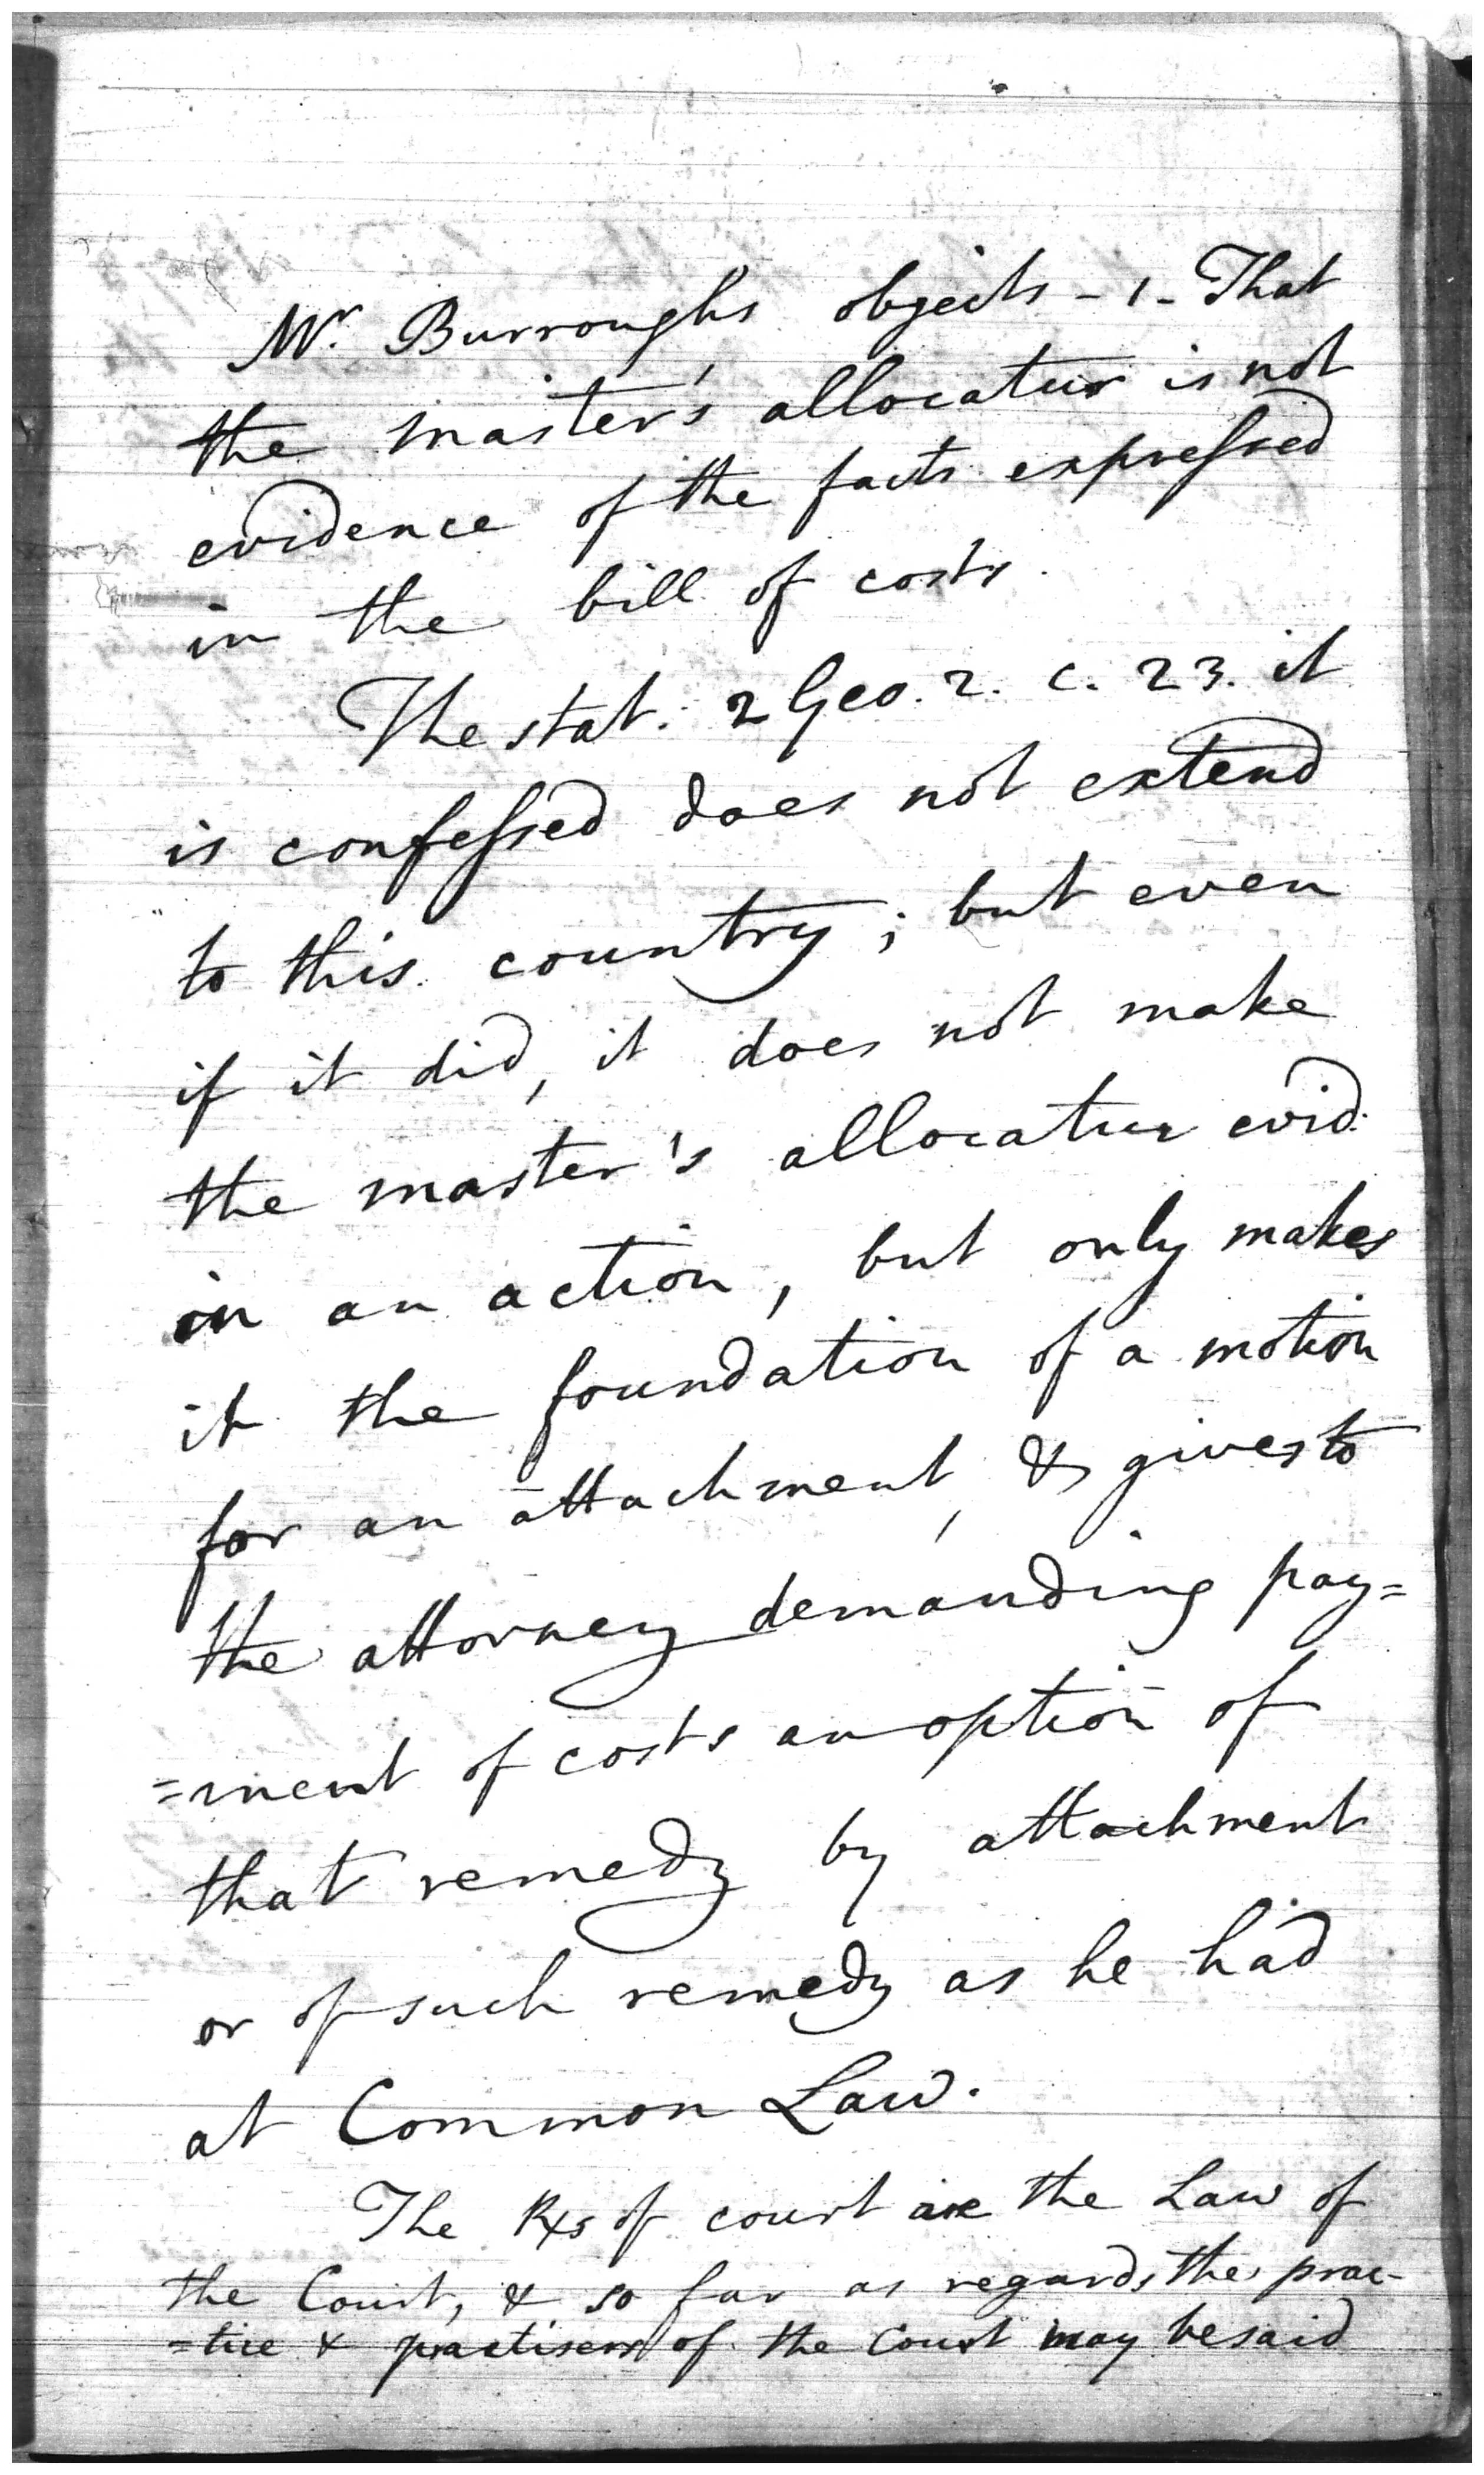 Mr. Burroughs objects - 1 - That
the master's allocatur is not
evidence of the facts expressed
in the bill of costs.
The stat. 2 Geo. 2. c. 23. it
is confessed does not extend
to this country; but even
if it did, it does not make
the master's allocatur evid.
in an action, but only makes
it the foundation of a motion
for an attachment, & gives to
the attorney demanding pay=
=ment of costs an option of
that remedy by attachment
or of such remedy as he had
at Common Law.
The of court are the Law of
the Court, & so far as regards the prac-
=tice & practisers of the Court may be said